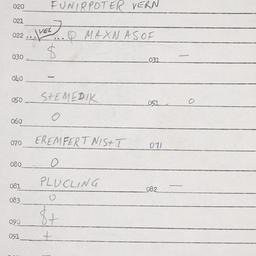 020 FUNIRPOTER VERN
021
022 ... VEL ... Q MAXNASOF
030 $ 031 —
040 –
050 STEMEDIK 051 0
060 0
070 EREMFERTNIST 071
080 0
081 PLUCLING 082 —
083 0
090 $+
091 +